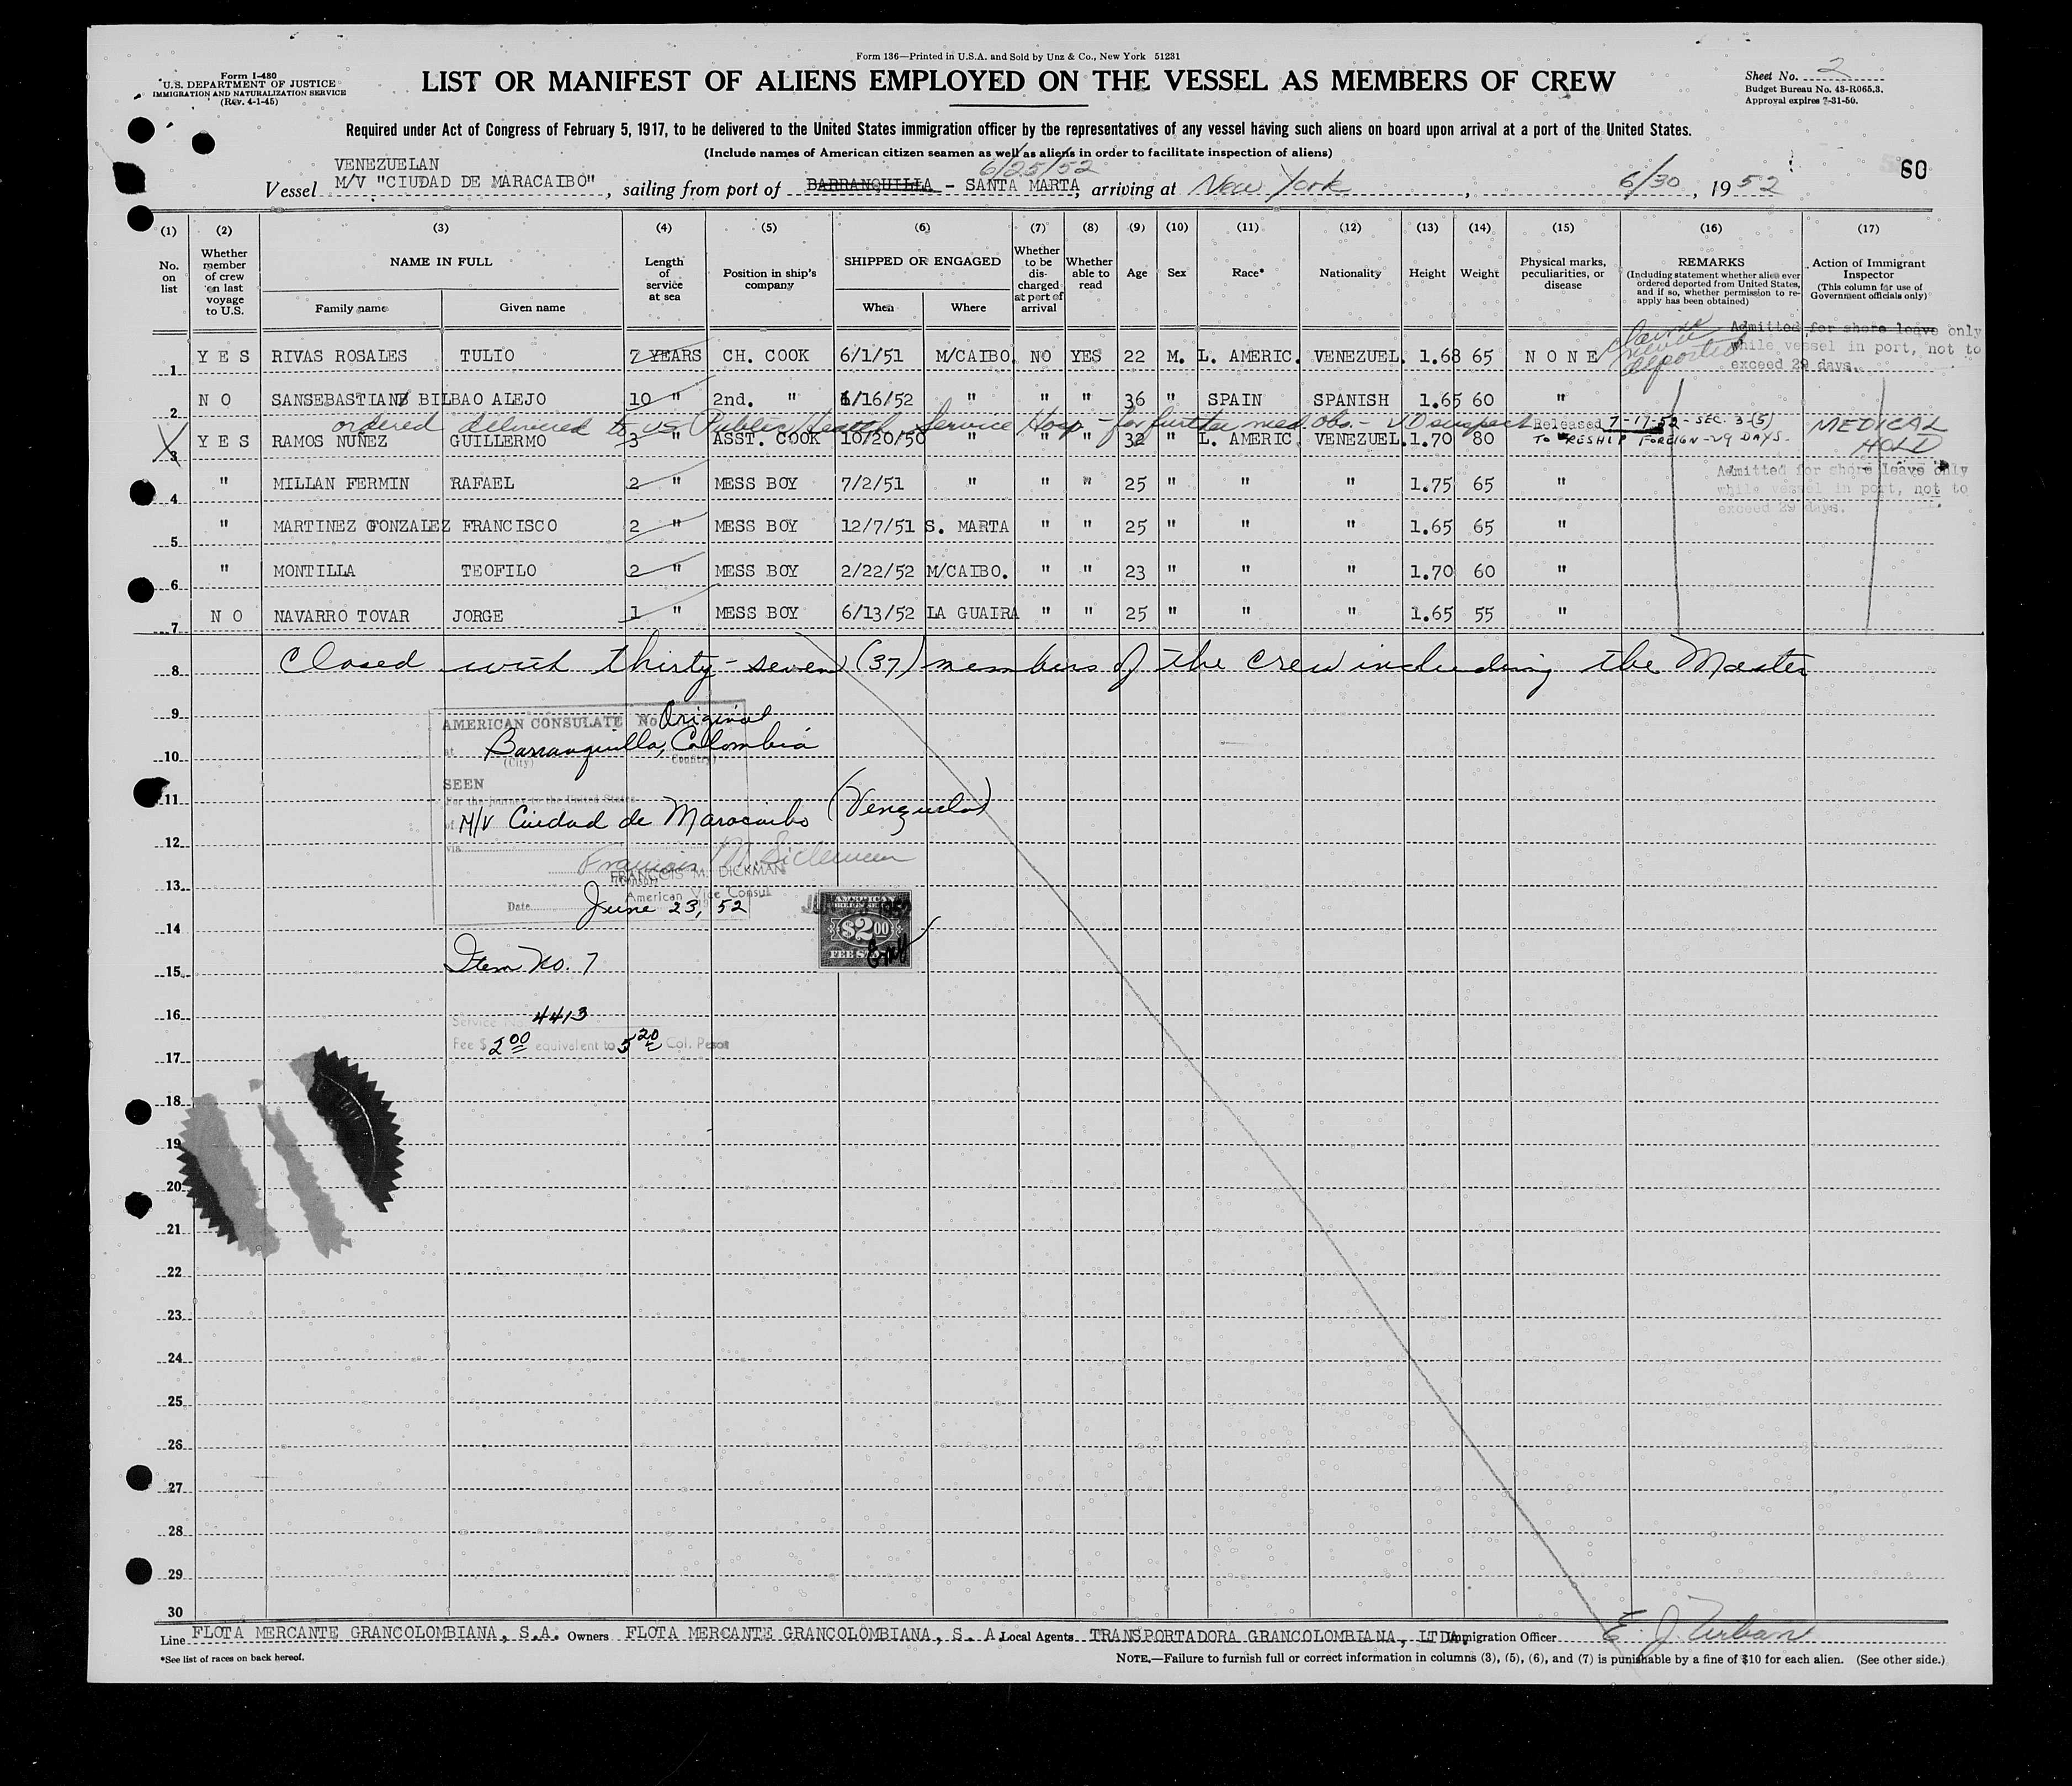 Form 136—Printed in U.S.A. and Sold by Unz & Co., New York 51231
Form I-480
U.S. DEPARTMENT OF JUSTICE
IMMIGRATION AND NATURALIZATION SERVICE
(Rev. 4-1-45)
LIST OR MANIFEST OF ALIENS EMPLOYED ON THE VESSEL AS MEMBERS OF CREW
Sheet No. 2
Budget Bureau No. 43-R065.3.
Approval expires 7-31-50.
Required under Act of Congress of February 5, 1917, to be delivered to the United States immigration officer by the representatives of any vessel having such aliens on board upon arrival at a port of the United States.
(Include names of American citizen seamen as well as aliens in order to facilitate inspection of aliens)
60
VENEZUELAN 6/25/52
Vessel M/V "CIUDAD DE MARACAIBO", sailing from port of BARRANQUILLA - SANTA MARTA, arriving at New York, 6/30, 1952
(1) (2) (3) (4) (5) (6) (7) (8) (9) (10) (11) (12) (13) (14) (15) (16) (17)
No. on list
Whether member of crew on last voyage to U.S.
NAME IN FULL
Family name Given name
Length of service at sea
Position in ship's company
SHIPPED OR ENGAGED
When Where
Whether to be discharged at port of arrival
Whether able to read
Age
Sex
Race*
Nationality
Height
Weight
Physical marks, peculiarities, or disease
REMARKS
(Including statement whether alien ever ordered deported from United States, and if so, whether permission to reapply has been obtained)
Action of Immigrant Inspector
(This column for use of Government officials only)
1 YES RIVAS ROSALES TULIO 7 YEARS CH. COOK 6/1/51 M/CAIBO. NO YES 22 M. L. AMERIC. VENEZUEL. 1.68 65 NONE never deported
Admitted for shore leave only
while vessel in port, not to
exceed 29 days.
2 NO SANSEBASTIAN BILBAO ALEJO 10 " 2nd. " 6/16/52 " " " 36 " SPAIN SPANISH 1.65 60 "
ordered delivered to US Public Health Service Hosp - for further med. obs. - VD suspect Released 7-17-52 - SEC. 3-(5)
TO RESHIP FOREIGN - 29 DAYS.
MEDICAL HOLD
3 YES RAMOS NUÑEZ GUILLERMO 3 " ASST. COOK 10/20/50 " " " 32 " L. AMERIC. VENEZUEL. 1.70 80
Admitted for shore leave only
while vessel in port, not to
exceed 29 days.
4 " MILLAN FERMIN RAFAEL 2 " MESS BOY 7/2/51 " " " 25 " " " 1.75 65 "
5 " MARTINEZ GONZALEZ FRANCISCO 2 " MESS BOY 12/7/51 S. MARTA " " 25 " " " 1.65 65 "
6 " MONTILLA TEOFILO 2 " MESS BOY 2/22/52 M/CAIBO. " " 23 " " " 1.70 60 "
7 NO NAVARRO TOVAR JORGE 1 " MESS BOY 6/13/52 LA GUAIRA " " 25 " " " 1.65 55 "
8 Closed with thirty-seven (37) members of the crew including the Master
9 AMERICAN CONSULATE No. Original
10 at Barranquilla, Colombia
(City) (Country)
SEEN
11 For the journey to the United States
of M/V Ciudad de Maracaibo (Venezuela)
12 via
13 FRANCOIS M. DICKMAN
American Vice Consul
Date June 23, 52
14
AMERICAN
$2.00
FEE STAMP
15 Item No. 7
16 Service No. 4413
17 Fee $ 2.00 equivalent to 5.20 Col. Pesos
18
19
20
21
22
23
24
25
26
27
28
29
30
Line FLOTA MERCANTE GRANCOLOMBIANA, S.A. Owners FLOTA MERCANTE GRANCOLOMBIANA, S. A. Local Agents TRANSPORTADORA GRANCOLOMBIANA, LTDA. Immigration Officer E. J. Urban
*See list of races on back hereof.
NOTE.—Failure to furnish full or correct information in columns (3), (5), (6), and (7) is punishable by a fine of $10 for each alien. (See other side.)